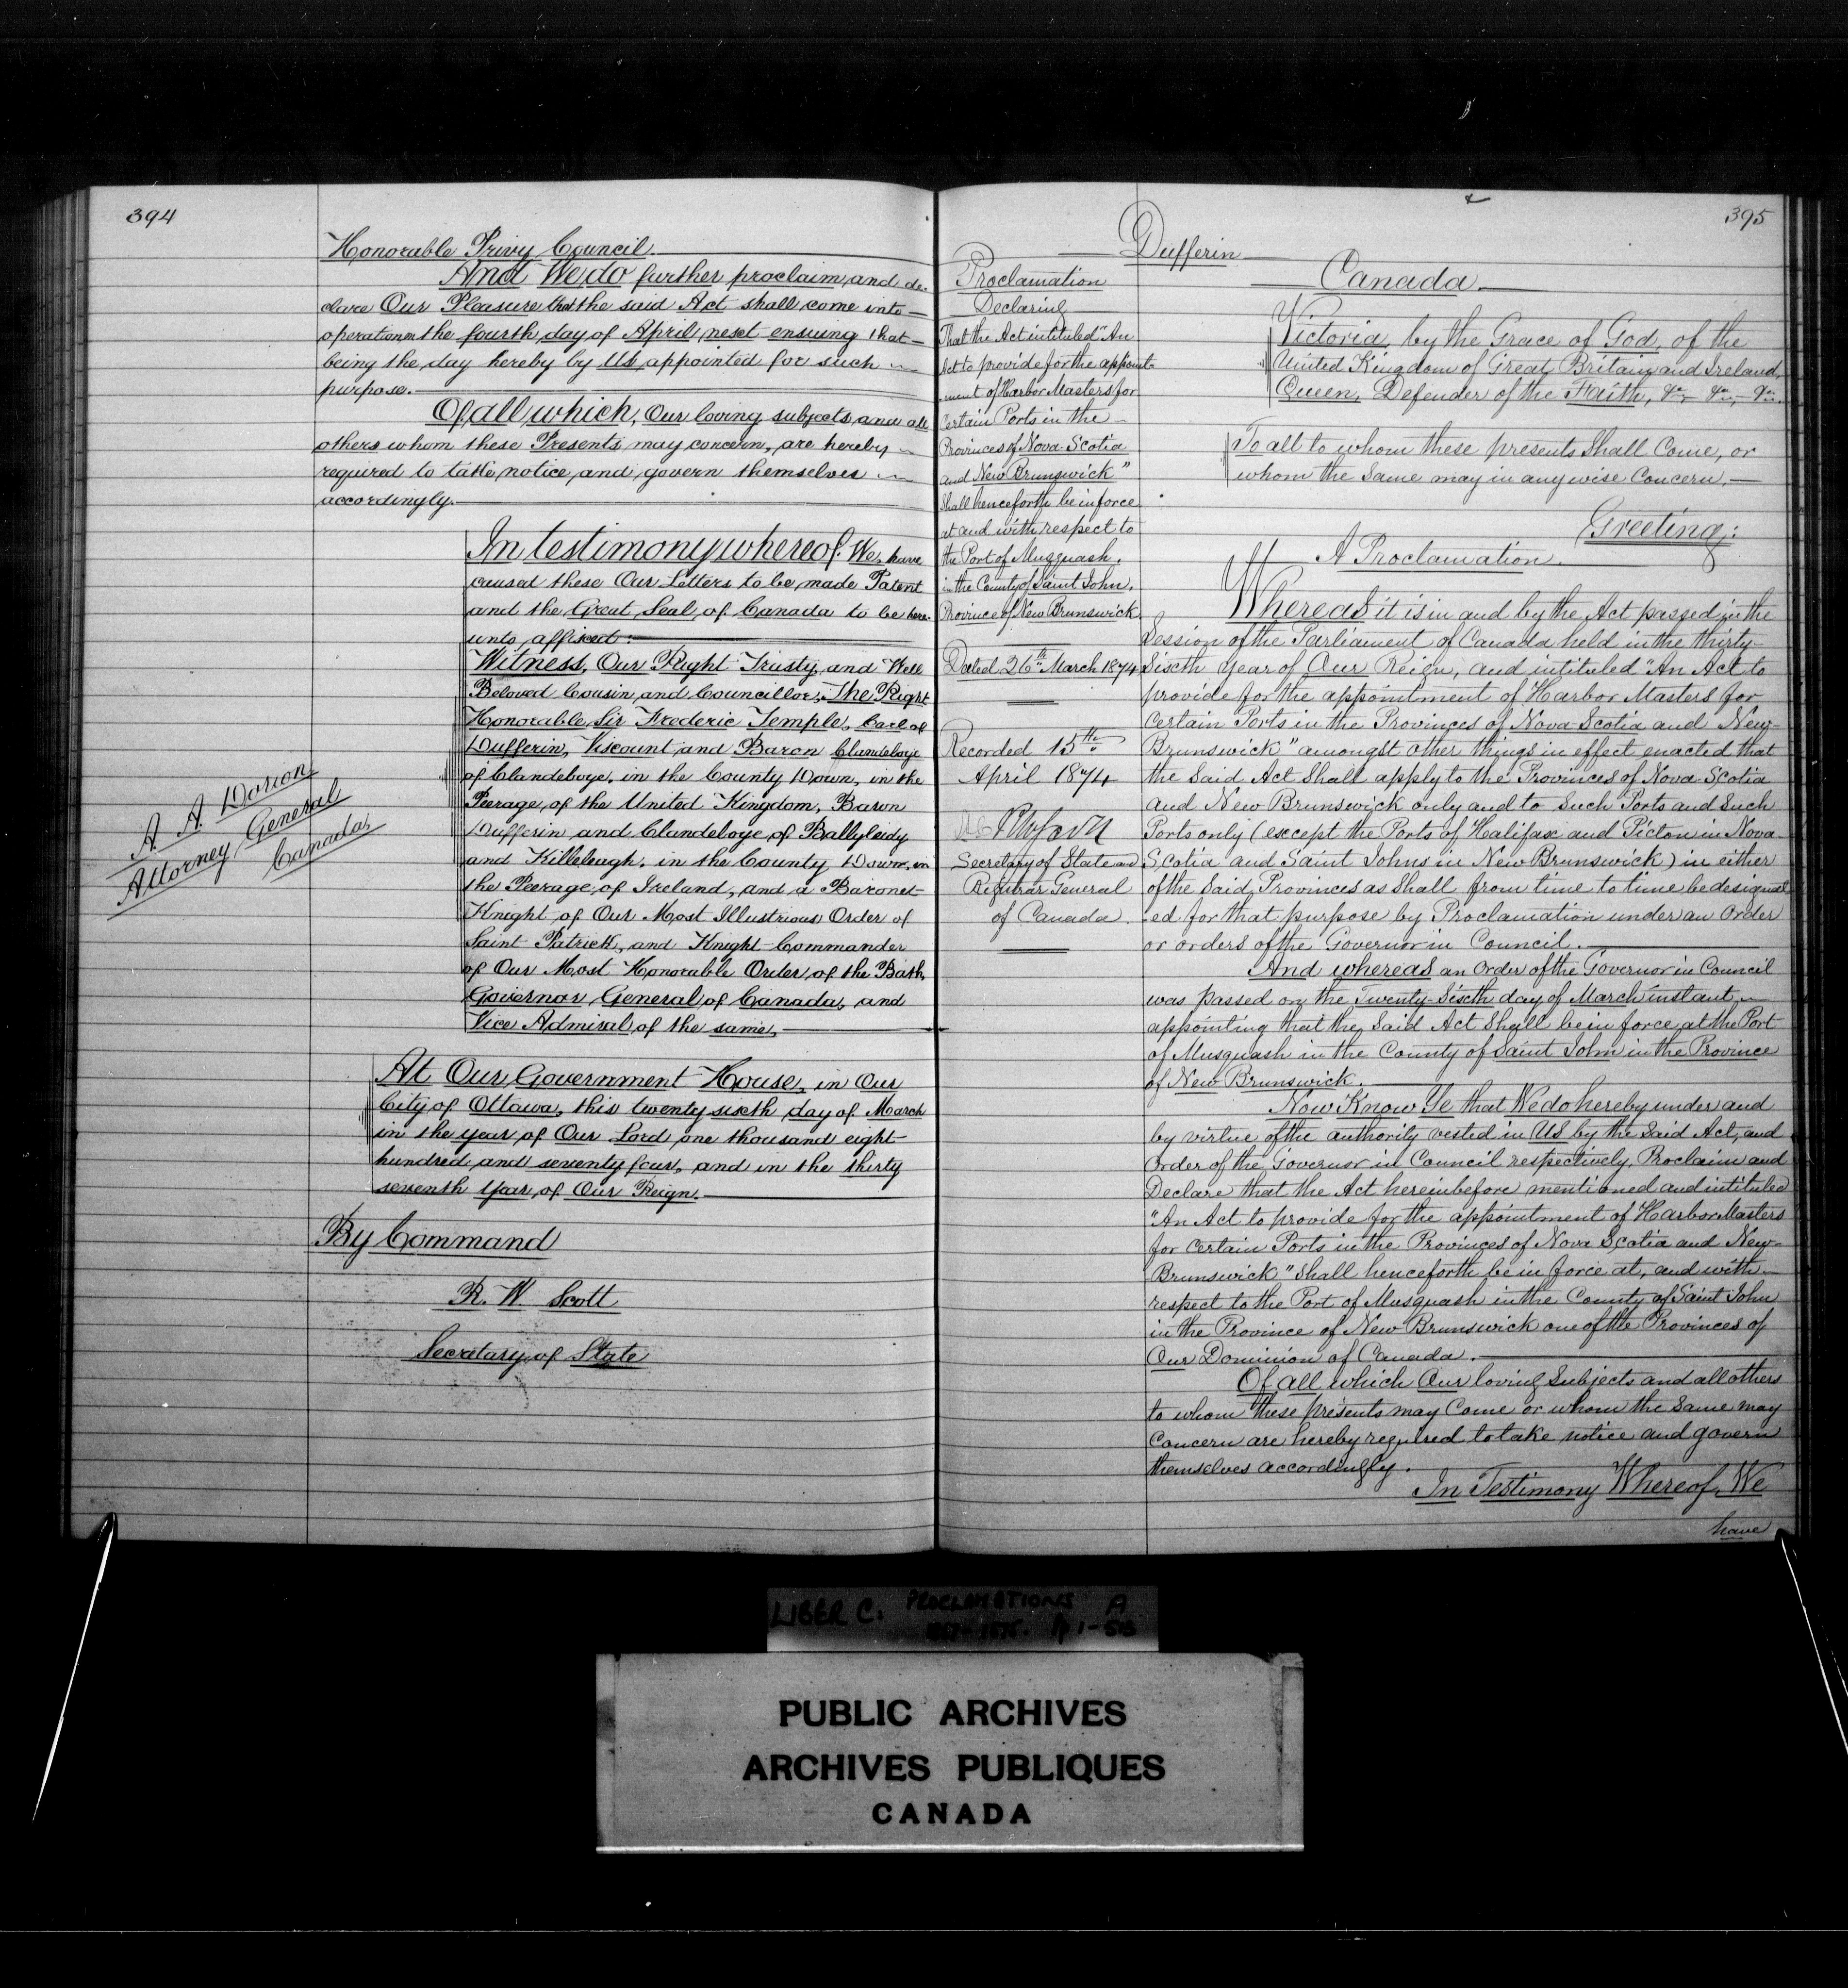 394
Honorable Privy Council.
And We do further proclaim and de-
clare Our Pleasure that the said Act shall come into
operation on the fourth day of April next ensuing that
being the day hereby by Us appointed for such
purpose.
Of all which, Our loving subjects and all
others whom these Presents may concern, are hereby
required to take notice, and govern themselves
accordingly.
In testimony whereof. We, have
caused these Our Letters to be made Patent
and the Great Seal of Canada to be here-
unto affixed:
Witness, Our Right Trusty and Well
Beloved Cousin and Councillor, The Right
Honorable Sir Frederic Temple, Earl of
Dufferin, Viscount and Baron Clandeboye
of Clandeboye, in the County Down, in the
Peerage of the United Kingdom, Baron
Dufferin and Clandeboye of Ballyleidy
and Killeleagh, in the County Down, in
the Peerage of Ireland, and a Baronet
Knight of Our Most Illustrious Order of
Saint Patrick, and Knight Commander
of Our Most Honorable Order of the Bath,
Governor General of Canada, and
Vice Admiral of the same,
A A Dorion
Attorney General
Canada
At Our Government House, in Our
City of Ottawa, this twenty sixth day of March
in the year of Our Lord one thousand eight
hundred and seventy four, and in the thirty
seventh year of Our Reign.
By Command
R. W. Scott
Secretary of State
395
Dufferin
Proclamation
Declaring
That the Act intituled "An
Act to provide for the appoint-
ment of Harbor Masters for
Certain Ports in the
Provinces of Nova Scotia
and New Brunswick"
Shall henceforth be in force
at and with respect to
the Port of Musquash,
in the County of Saint John,
Province of New Brunswick
Dated 26th March 1874
Recorded 15th
April 1874
Secretary of State and
Registrar General
of Canada
Canada
Victoria, by the Grace of God, of the
United Kingdom of Great Britain and Ireland,
Queen, Defender of the Faith, &c., &c., &c.
To all to whom these presents Shall Come, or
whom the Same may in anywise Concern,
Greeting:
A Proclamation.
Whereas it is in and by the Act passed in the
Session of the Parliament of Canada held in the thirty-
Sixth year of Our Reign, and intituled "An Act to
provide for the appointment of Harbor Masters for
Certain Ports in the Provinces of Nova Scotia and New-
Brunswick" amongst other things in effect enacted that
the Said Act Shall apply to the Provinces of Nova Scotia
and New Brunswick only and to Such Ports and Such
Ports only (except the Ports of Halifax and Picton in Nova
Scotia and Saint Johns in New Brunswick) in either
of the Said Provinces as Shall from time to time be designat-
ed for that purpose by Proclamation under an Order
or orders of the Governor in Council.
And whereas an Order of the Governor in Council
was passed on the Twenty-Sixth day of March instant
appointing that the Said Act Shall be in force at the Port
of Musquash in the County of Saint John in the Province
of New Brunswick.
Now Know Ye that We do hereby under and
by virtue of the authority vested in Us by the Said Act, and
Order of the Governor in Council respectively, Proclaim and
Declare that the Act hereinbefore mentioned and intituled
"An Act to provide for the appointment of Harbor Masters
for Certain Ports in the Provinces of Nova Scotia and New-
Brunswick" Shall henceforth be in force at, and with
respect to the Port of Musquash in the County of Saint John
in the Province of New Brunswick one of the Provinces of
Our Dominion of Canada.
Of all which Our loving Subjects and all others
to whom these presents may Come or whom the Same may
Concern are hereby required to take notice and govern
themselves accordingly.
In Testimony Whereof, We
have
LIBER C. PROCLAMATIONS A
1867-1875. Pp 1-513
PUBLIC ARCHIVES
ARCHIVES PUBLIQUES
CANADA